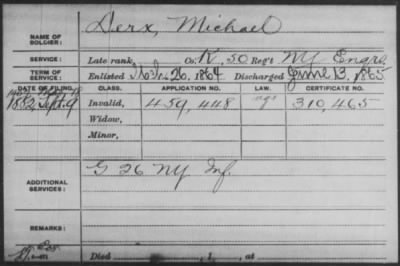 NAME OF SOLDIER: Derx, Michael
SERVICE: Late rank, Co. K, 50 Reg't NY Engrs.
TERM OF SERVICE: Enlisted Feb. 26, 1864 Discharged June 13, 1865
DATE OF FILING. CLASS. APPLICATION NO. LAW. CERTIFICATE NO.
1882, Sept. 9 Invalid, 459,448 310,465
Widow,
Minor,
ADDITIONAL SERVICES: G 26 NY Inf.
REMARKS:
Died , 1 , at